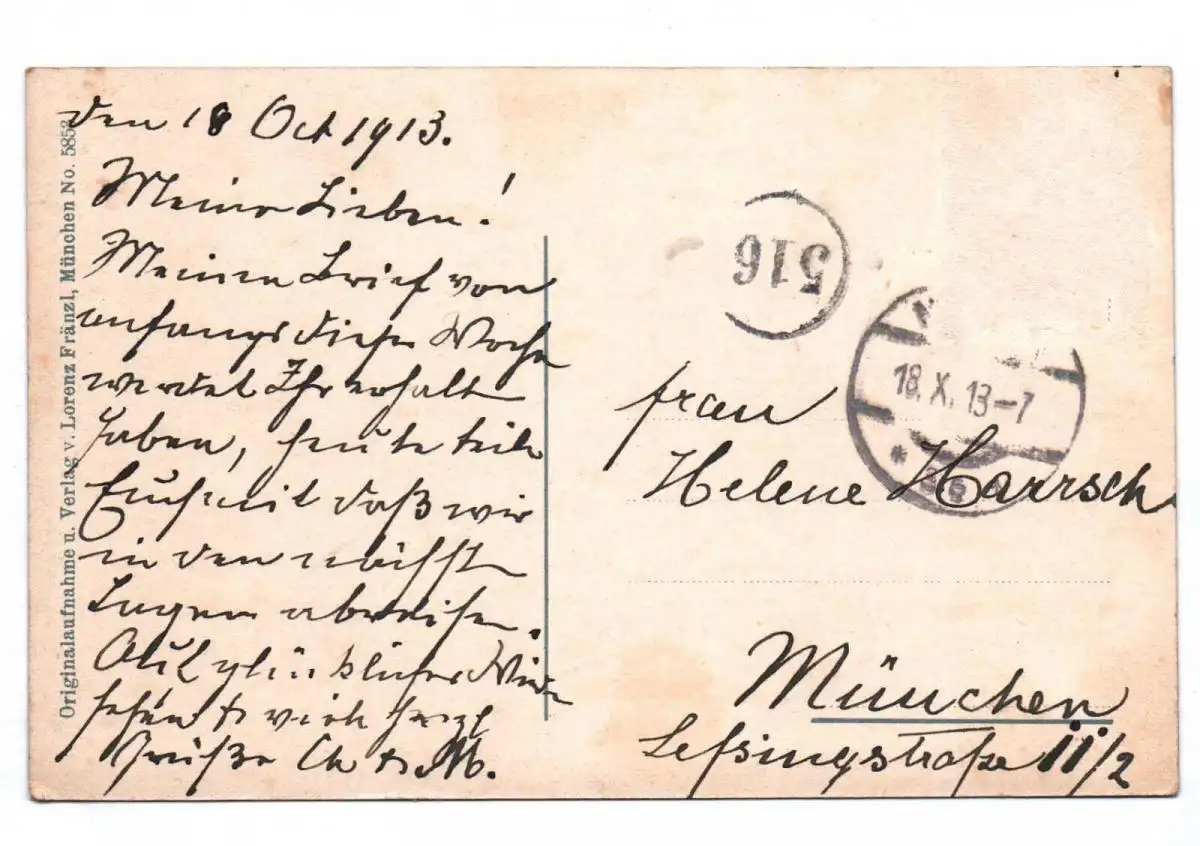 den 18 Oct 1913.
Meine Lieben!
Meinen Brief von
anfangs dieser Woche
werdet Ihr erhalt
haben, heute teile
Euch mit daß wir
in den nächsten
Tagen abreisen.
Auf glückliches Wieder
sehen u viele herzl
Grüße Ch u. M.
Originalaufnahme u. Verlag v. Lorenz Fränzl, München No. 5853
516
18. X. 13-7
Frau
Helene Harrsch
München
Lessingstraße 11/2